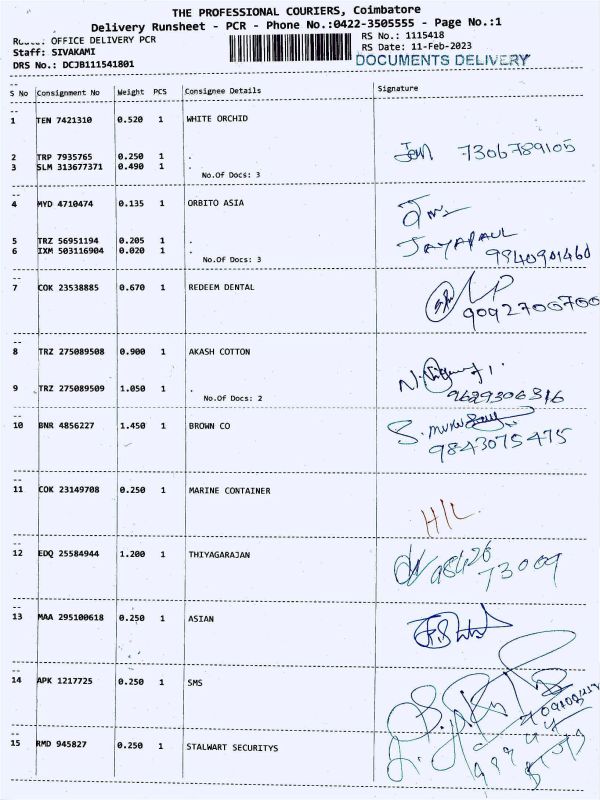 THE PROFESSIONAL COURIERS, Coimbatore
Delivery Runsheet - PCR - Phone No.:0422-3505555 - Page No.:1
OFFICE DELIVERY PCR
RS No.: 1115418
Staff: SIVAKAMI
RS Date: 11-Feb-2023
DRS No.: DCJB111541801
DOCUMENTS DELIVERY
S No Consignment No Weight PCS Consignee Details Signature
1 TEN 7421310 0.520 1 WHITE ORCHID
7306789105
2 TRP 7935765 0.250 1 .
3 SLM 313677371 0.490 1 .
No.Of Docs: 3
4 MYD 4710474 0.135 1 ORBITO ASIA
5 TRZ 56951194 0.205 1 .
JAYAPAUL
6 IXM 503116904 0.020 1 .
9840901460
No.Of Docs: 3
7 COK 23538885 0.670 1 REDEEM DENTAL
9092700700
8 TRZ 275089508 0.900 1 AKASH COTTON
9 TRZ 275089509 1.050 1 .
9629306316
No.Of Docs: 2
10 BNR 4856227 1.450 1 BROWN CO
9843075475
11 COK 23149708 0.250 1 MARINE CONTAINER
H/L
12 EDQ 25584944 1.200 1 THIYAGARAJAN
98426
73009
13 MAA 295100618 0.250 1 ASIAN
14 APK 1217725 0.250 1 SMS
15 RMD 945827 0.250 1 STALWART SECURITYS